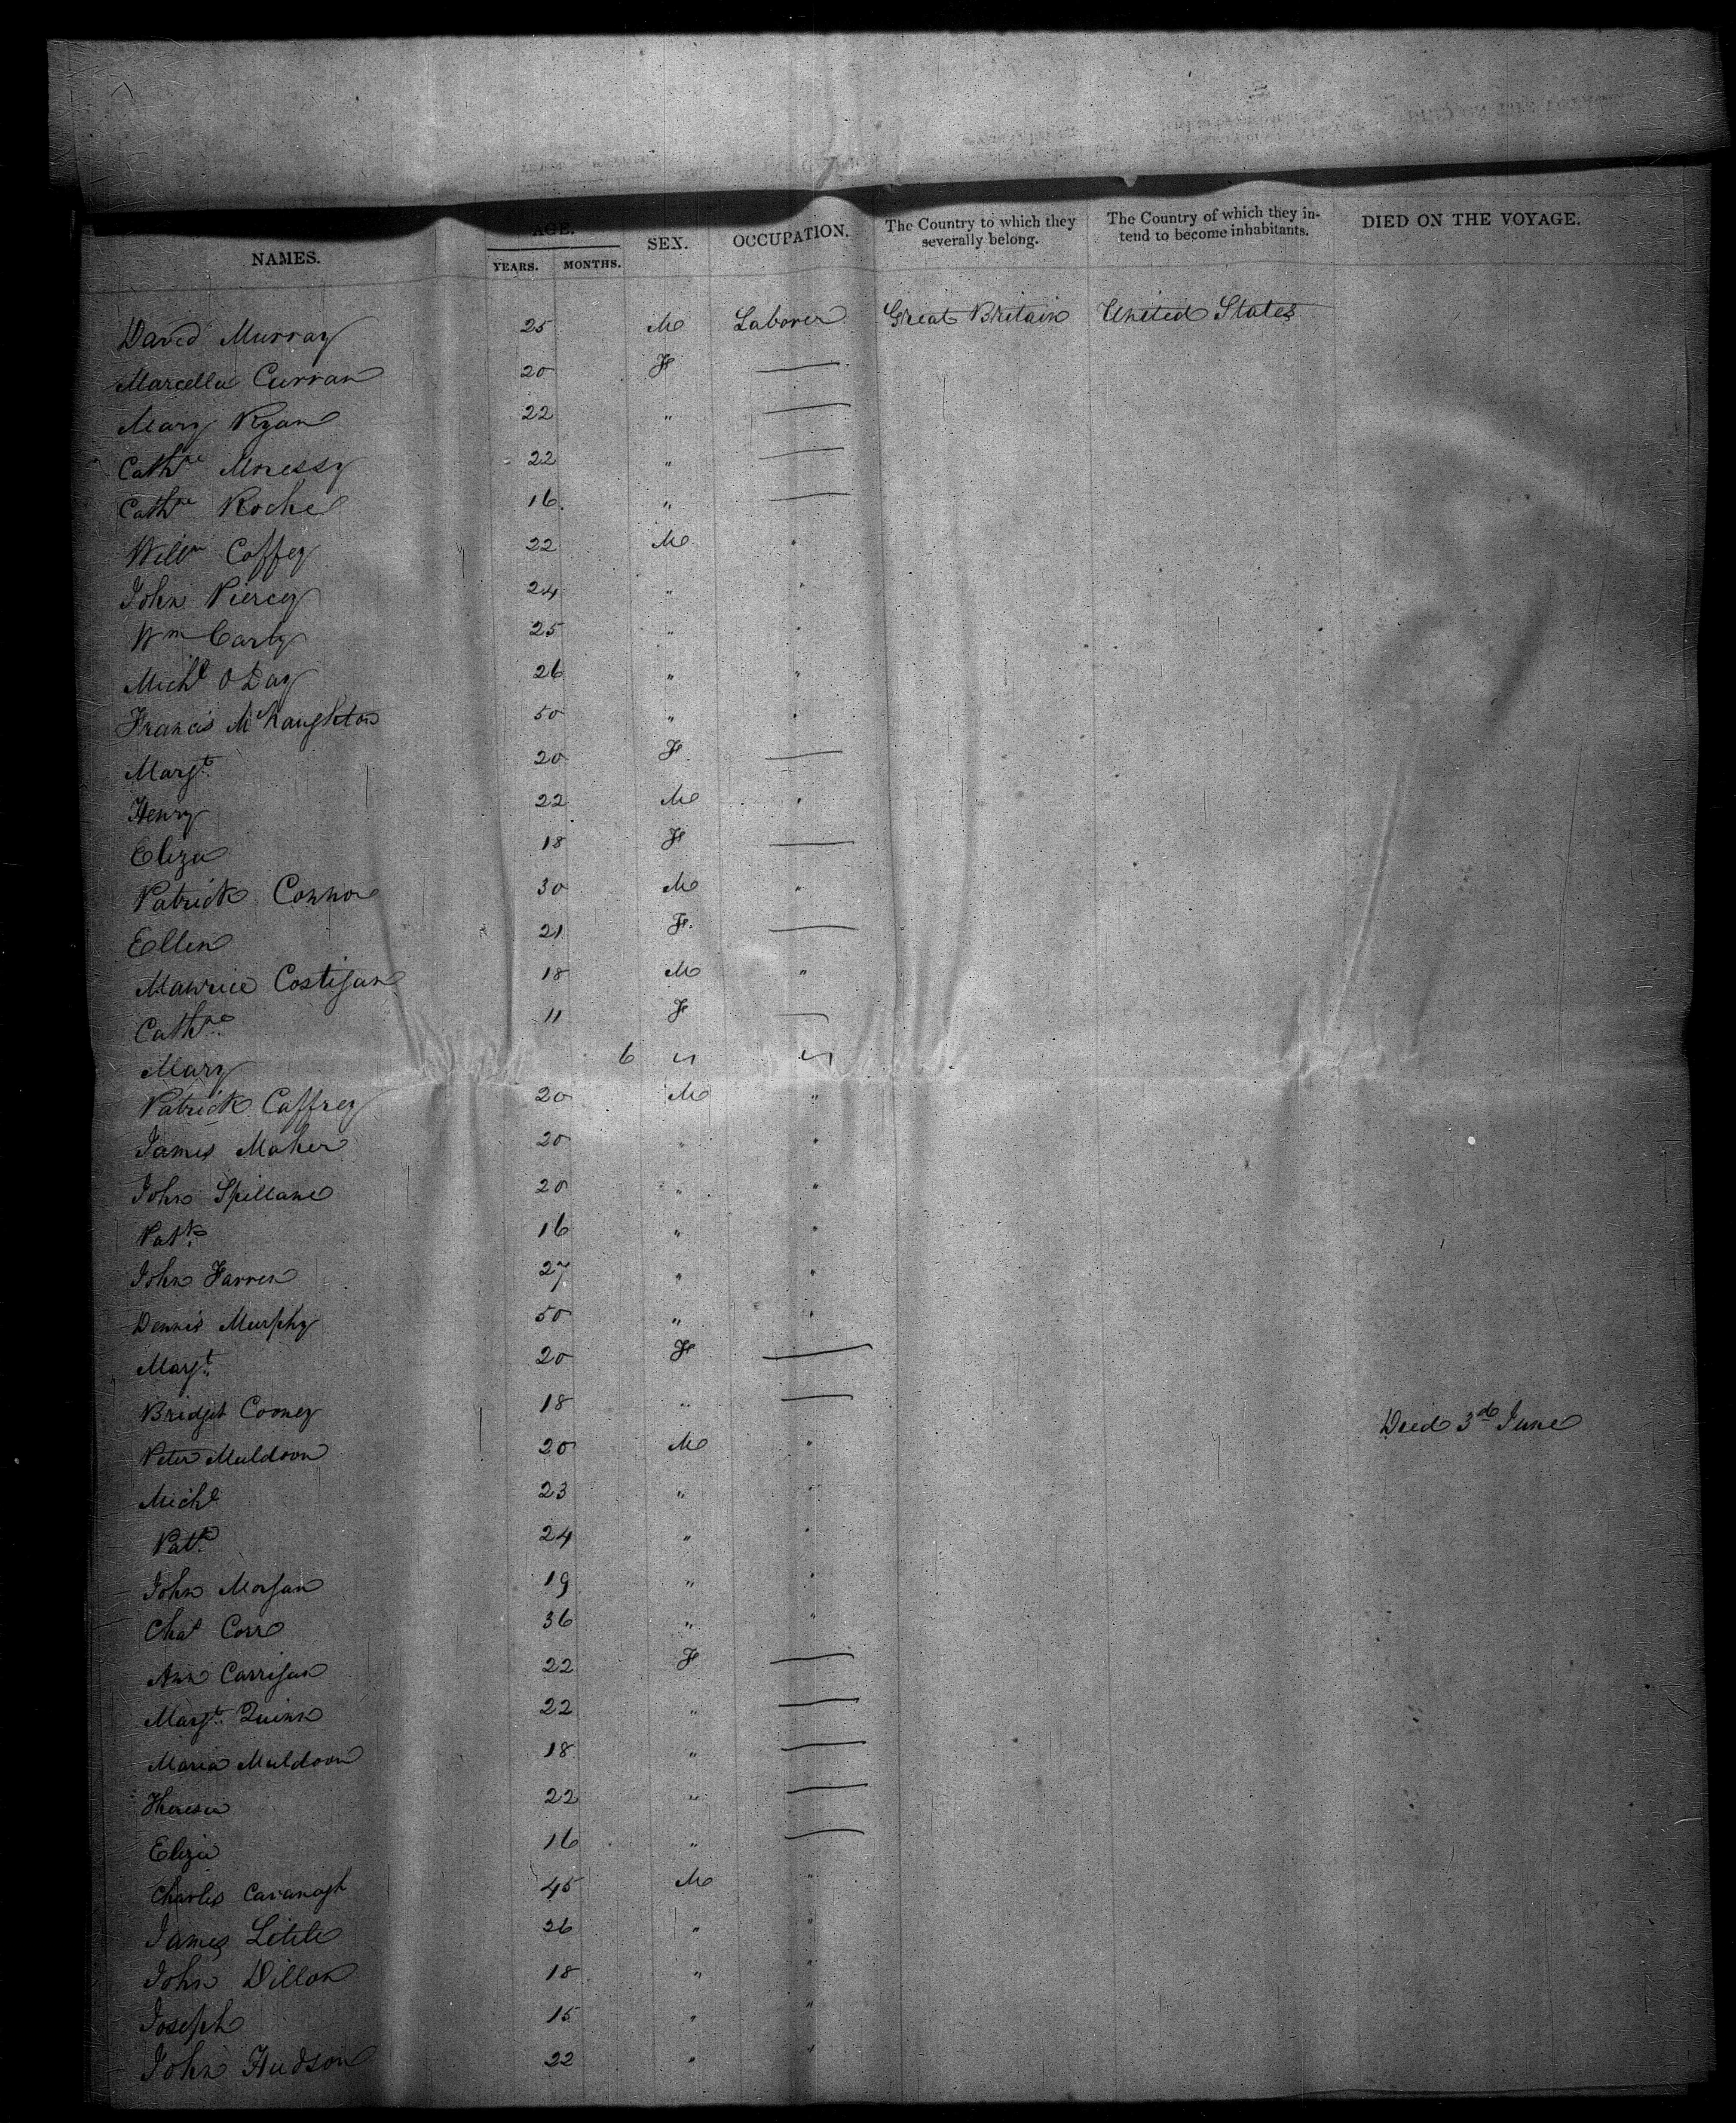 NAMES. AGE. YEARS. MONTHS. SEX. OCCUPATION. The Country to which they severally belong. The Country of which they intend to become inhabitants. DIED ON THE VOYAGE.
David Murray 25 M Laborer Great Britain United States
Marcella Curran 20 F —
Mary Ryan 22 " —
Cathne 22 " —
Cathne Roche 16 " —
Willm Coffey 22 M "
John Piercy 24 " "
Wm Carty 25 " "
Michl O Day 26 " "
Francis McNaughton 50 " "
Margt. 20 F —
Henry 22 M "
Eliza 18 F —
Patrick Connor 30 M "
Ellen 21 F. —
Maurice Costigan 18 M "
Cathne 11 F —
Mary 6 " "
Patrick Caffrey 20 M "
James Maher 20 " "
John Spillane 20 " "
Patk. 16 " "
John Farren 27 " "
Dennis Murphy 50 " "
Margt. 20 F —
Bridget Cooney 18 " — Died 3d June
Peter Muldoon 20 M "
Michl 23 " "
Patk. 24 " "
John Morgan 19 " "
Chas Corr 36 " "
Ann Carrigan 22 F —
Margt. Quinn 22 " —
Maria Muldoon 18 " —
Theresa 22 " —
Eliza 16 " —
Charles Cavanagh 45 M "
James Little 26 " "
John Dillon 18 " "
Joseph 15 " "
John Hudson 22 " "